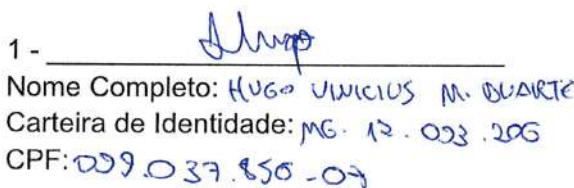 1 - Hugo
Nome Completo: HUGO VINICIUS M. DUARTE
Carteira de Identidade: MG. 12.093.206
CPF: 099.037.856-07